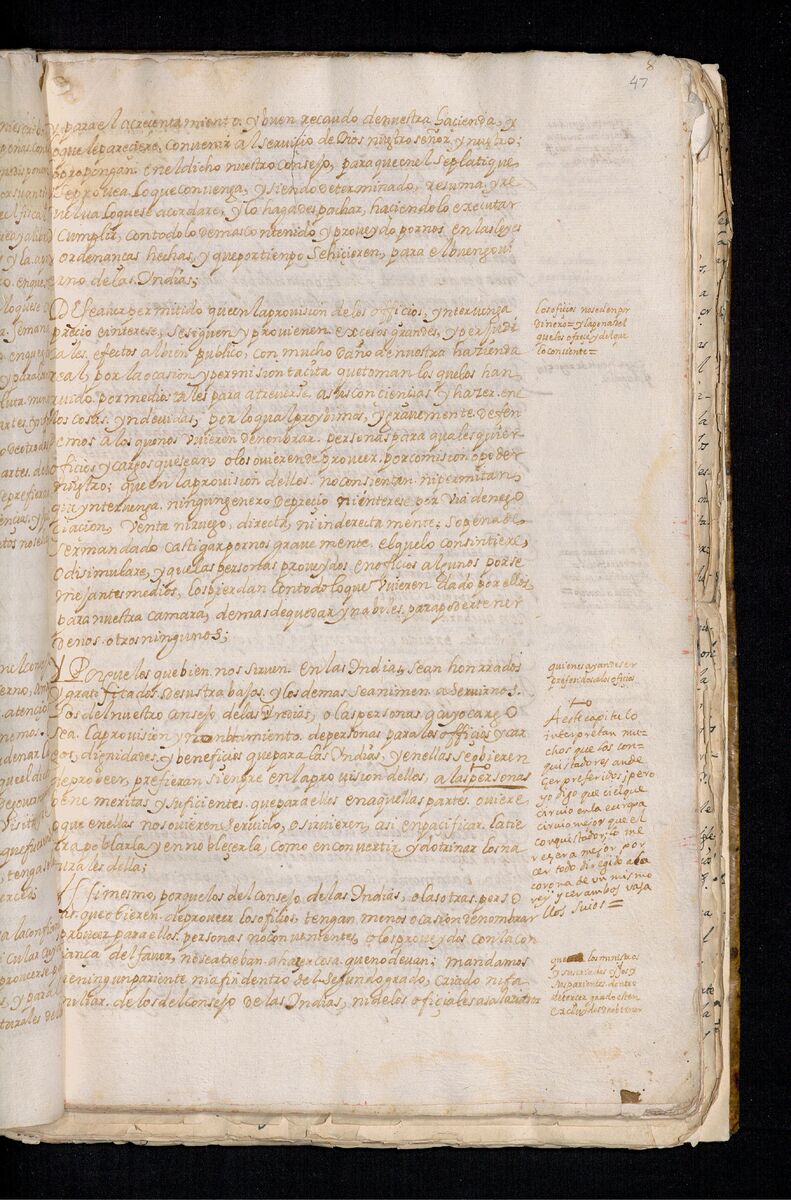 8
47
y para el acreçentamiento, y buen recaudo de nuestra hacienda, y
lo que le pareciere, convenir al serviçio de Dios nuestro señor, y nuestro;
lo propongan. en el dicho nuestro Consejo, para que en el se platique,
Y se provea. lo que convenga, y siendo determinado, resuma, y re
suelva lo que se acordare, y lo haga despachar, haciendo lo executar
Cumplir, con todo lo demas contenido y proveydo por nos, en las leyes
ordenanzas hechas, y que por tiempo se hiçieren, para el buen govi
erno de las Indias;
DE se aver permitido que en la provision de los officios, yntervenga
preçio e interese, se siguen y provienen. excesos grandes, y perjudi
çiales, efectos al bien publico, con mucho daño de nuestra hazienda
real, por la ocasion y permision taçita que toman los que los han
avido por medios tales para atreverse. a sus conciencias y hazer. en e
llos cosas. yndevidas, por lo qual proybimos, y gravemente defen
demos a los que nos uvieren de nonbrar. personas para quales quier
offiçios y cargos que sean, o los ovieren de proveer. por comision o poder
nuestro; que en la provision dellos. no consientan. ni permitan,
que yntervenga. ningun genero de preçio ni interese por via de nego
ciacion, venta ni ruego, directa, ni inderecta mente; so pena de,
ser mandado castigar por nos grave mente. el que lo consintiere,
o disimulare, y que las personas proveydos en ofiçios algunos por se
mejantes medios, los pierdan con todo lo que uvieren dado por ellos,
para nuestra camara, demas de quedar ynabiles. para poder tener
de nos. otros ningunos;
Y Porque los que bien. nos sirven. en las Indias, sean honrrados
y gratificados. de sus trabajos. y los demas se animen. a servirnos.
Los del nuestro Consejo de las Indias, o las personas. a cuyo cargo
sea. la provision y nombramiento. de personas para los offiçios y car
gos, dignidades. y beneficios que para las Indias. y en ellas se o bieren
de proveer, prefieran siempre en la provision dellos, a las personas
bene meritas y suficientes. que para ellos en aquellas partes. oviere
o que en ellas nos ovieren servido, o sirvieren, asi en pacificar. la tie
rra poblarla, y ennobleçerla, como en convertir y dotrinar los na
turales della;
Assi mesmo, porque los del consejo de las Indias, o las otras perso
nas que obieren. de proveer los ofiçios, tengan menos ocasion de nombrar
proveer para ellos. personas no convenientes, o los proveydos con la con
fiança del favor, no se atreban. a hazer cosa que no devan: mandamos
que ningun pariente ni afin dentro del Segundo grado, criado ni fa
miliar. de los del Consejo de las Indias, ni de los ofiçiales asalariados
los ofiçios no se den por
dinero = y la pena del
que los ofreçe y del que
lo consiente =
quienes ayan de ser
preferidos a los ofiçios
A este capitulo
interpretan mu-
chos que los con-
quistadores ande
çer preferidos; pero
yo digo que ci el que
circuio en la europa
ciruio mejor que el
conquistador, lo me
reçera mejor por
cer todo dirigido a la
corona de un mismo
rey y cer ambos vaça
llos suios =
que los ministros
y sus criados y los
sus parientes. dentro
del terçer grado esten
excluydos de obtener